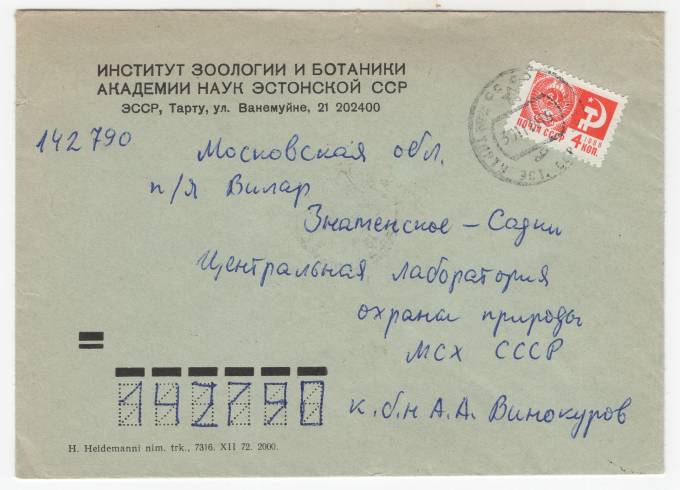 ИНСТИТУТ ЗООЛОГИИ И БОТАНИКИ
АКАДЕМИИ НАУК ЭСТОНСКОЙ ССР
ЭССР, Тарту, ул. Ванемуйне, 21 202400
ПОЧТА СССР
1966
4 КОП.
142790
Московская обл.
п/я Вилар
Знаменское – Садки
Центральная лаборатория
охраны природы
МСХ СССР
к.б.н А.А. Винокуров
142790
H. Heidemanni nim. trk., 7316. XII 72. 2000.